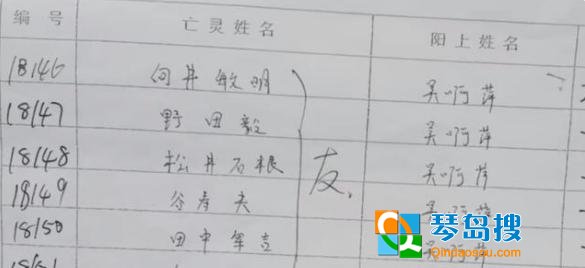 编号 亡灵姓名 阳上姓名
18146 向井敏明 吴啊萍
18147 野田毅 吴啊萍
18148 松井石根 友. 吴啊萍
18149 谷寿夫 吴啊萍
18150 田中军吉 吴啊萍
琴岛搜
Qindaosou.com